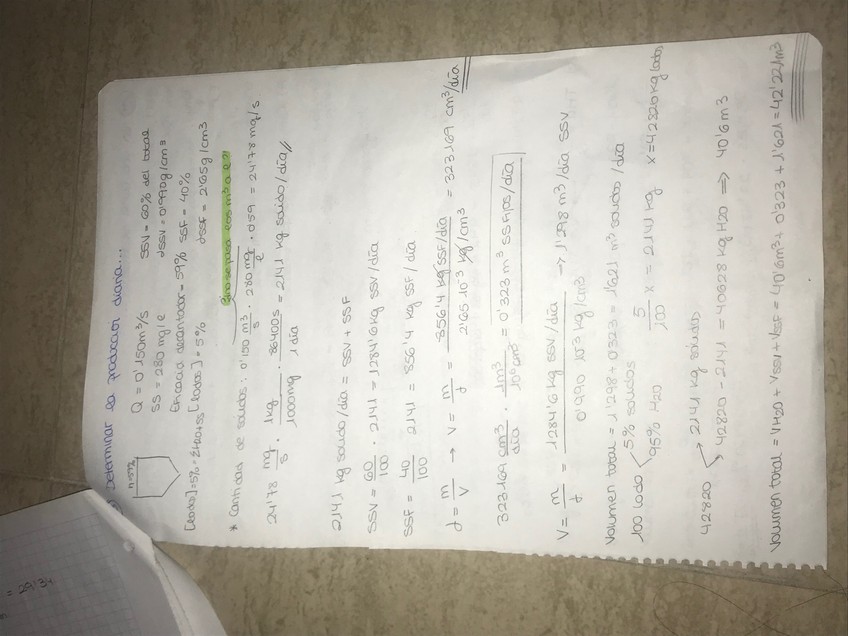 Determinar la produccion diaria...
η=59%
Q = 0'150m³/s SSV = 60% del total
SS = 280 mg/l dSSV = 0'990g/cm³
Eficacia decantador = 59% SSF = 40%
[lodos] = 5% dSSF = 2'65g/cm³
[lodos] = 5% =
¿no se pasa los m³ a l?
* Cantidad de sólidos: 0'150 m³/s · 280 mg/l · 0'59 = 24'78 mg/s
24'78 mg/s · 1kg/1000mg · 86400s/1 dia = 2141 kg solido/dia//
2141 kg solido/dia = SSV + SSF
SSV = 60/100 · 2141 = 1284'6 kg SSV/dia
SSF = 40/100 2141 = 856'4 kg SSF/dia
d = m/V → V = m/d = 856'4 kg SSF/dia / 2'65 10⁻³ kg/cm³ = 323169 cm³/dia
323169 cm³/dia · 1m³/10⁶cm³ = 0'323 m³ SS Fijos/dia
V = m/d = 1284'6 kg SSV/dia / 0'990 10³ kg/cm³ → 1'298 m³/dia SSV
Volumen total = 1'298 + 0'323 = 1'621 m³ solidos/dia
100 lodo < 5% solidos
95% H2O
5/100 x = 2141 kg x = 42820 kg lodos
42820 → 2141 kg solidos
42820 - 2141 = 40628 kg H2O ⇒ 40'6m³
Volumen total = VH2O + VSSV + VSSF = 40'6m³ + 0'323 + 1'621 = 42'221m³
= 29134